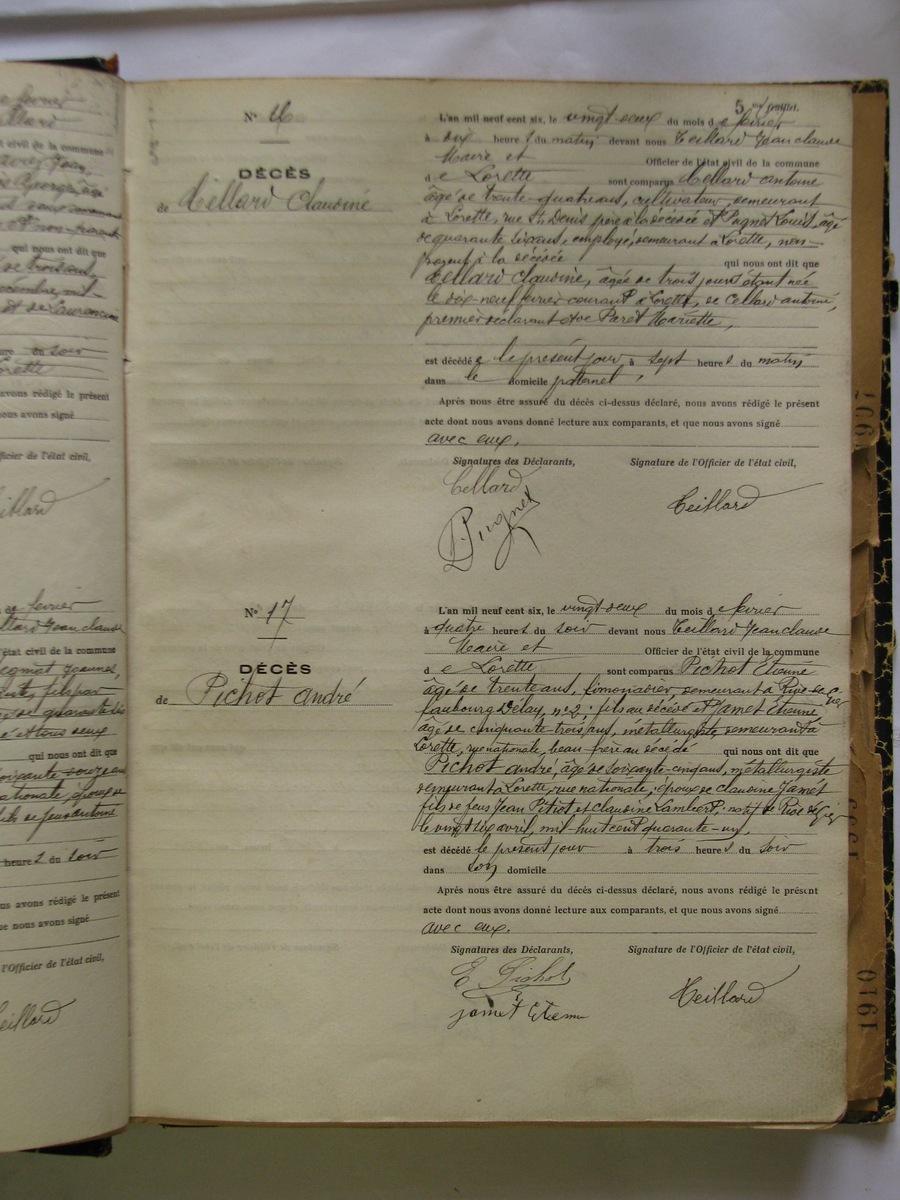 5 me feuillet.
N° 16
DÉCÈS
de Cellard Claudine
L'an mil neuf cent six, le vingt-deux du mois de février
à dix heures du matin devant nous Teillard Jean claude
Maire et Officier de l'état civil de la commune
de Lorette sont comparus Cellard antoine
âgé de trente-quatre ans, cultivateur, demeurant
à Lorette, rue St Denis père à la décédée et Pugnet Louis, âgé
de quarante six ans, employé, demeurant à Lorette, non-
parent à la décédée qui nous ont dit que
Cellard Claudine, âgée de trois jours étant née
le dix-neuf février courant à Lorette, de Cellard antoine,
premier déclarant et de Paret Mariette,
est décédée le présent jour à sept heures du matin
dans le domicile paternel,
Après nous être assuré du décès ci-dessus déclaré, nous avons rédigé le présent
acte dont nous avons donné lecture aux comparants, et que nous avons signé
avec eux.
Signatures des Déclarants, Signature de l'Officier de l'état civil,
Cellard
Teillard
Pugnet
N° 17
DÉCÈS
de Pichot andré
L'an mil neuf cent six, le vingt-deux du mois de février
à quatre heures du soir devant nous Teillard Jean claude
Maire et Officier de l'état civil de la commune
de Lorette sont comparus Pichot Etienne
âgé de trente ans, limonadier, demeurant à Rive-de-Gier
faubourg Delay, n° 2, fils au décédé et Jamet Etienne
âgé de cinquante-trois ans, métallurgiste demeurant à
Lorette, rue nationale, beau-frère au décédé qui nous ont dit que
Pichot andré, âgé de soixante-cinq ans, métallurgiste
demeurant à Lorette, rue nationale, époux de claudine Jamet
fils de feus Jean Pitiot, et Claudine Lambert; natif de Rive de Gier
le vingt six avril, mil-huit cent quarante-un,
est décédé le présent jour à trois heures du soir
dans son domicile
Après nous être assuré du décès ci-dessus déclaré, nous avons rédigé le présent
acte dont nous avons donné lecture aux comparants, et que nous avons signé
avec eux.
Signatures des Déclarants, Signature de l'Officier de l'état civil,
E Pichot
Teillard
Jamet Etienne
1907
1910